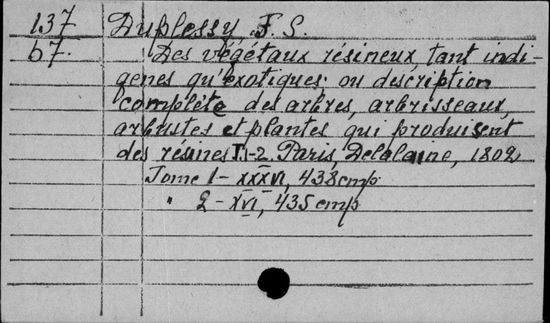 137 Duplessy, F. S.
b7. Des végétaux résineux, tant indi-
genes qu'exotiques; ou description
complète des arbres, arbrisseaux,
arbustes et plantes qui produisent
des résines T.1-2. Paris, Delalaine, 1802
Tome 1 - XXXVI, 438 стр.
" 2 - XVI, 435 стр.